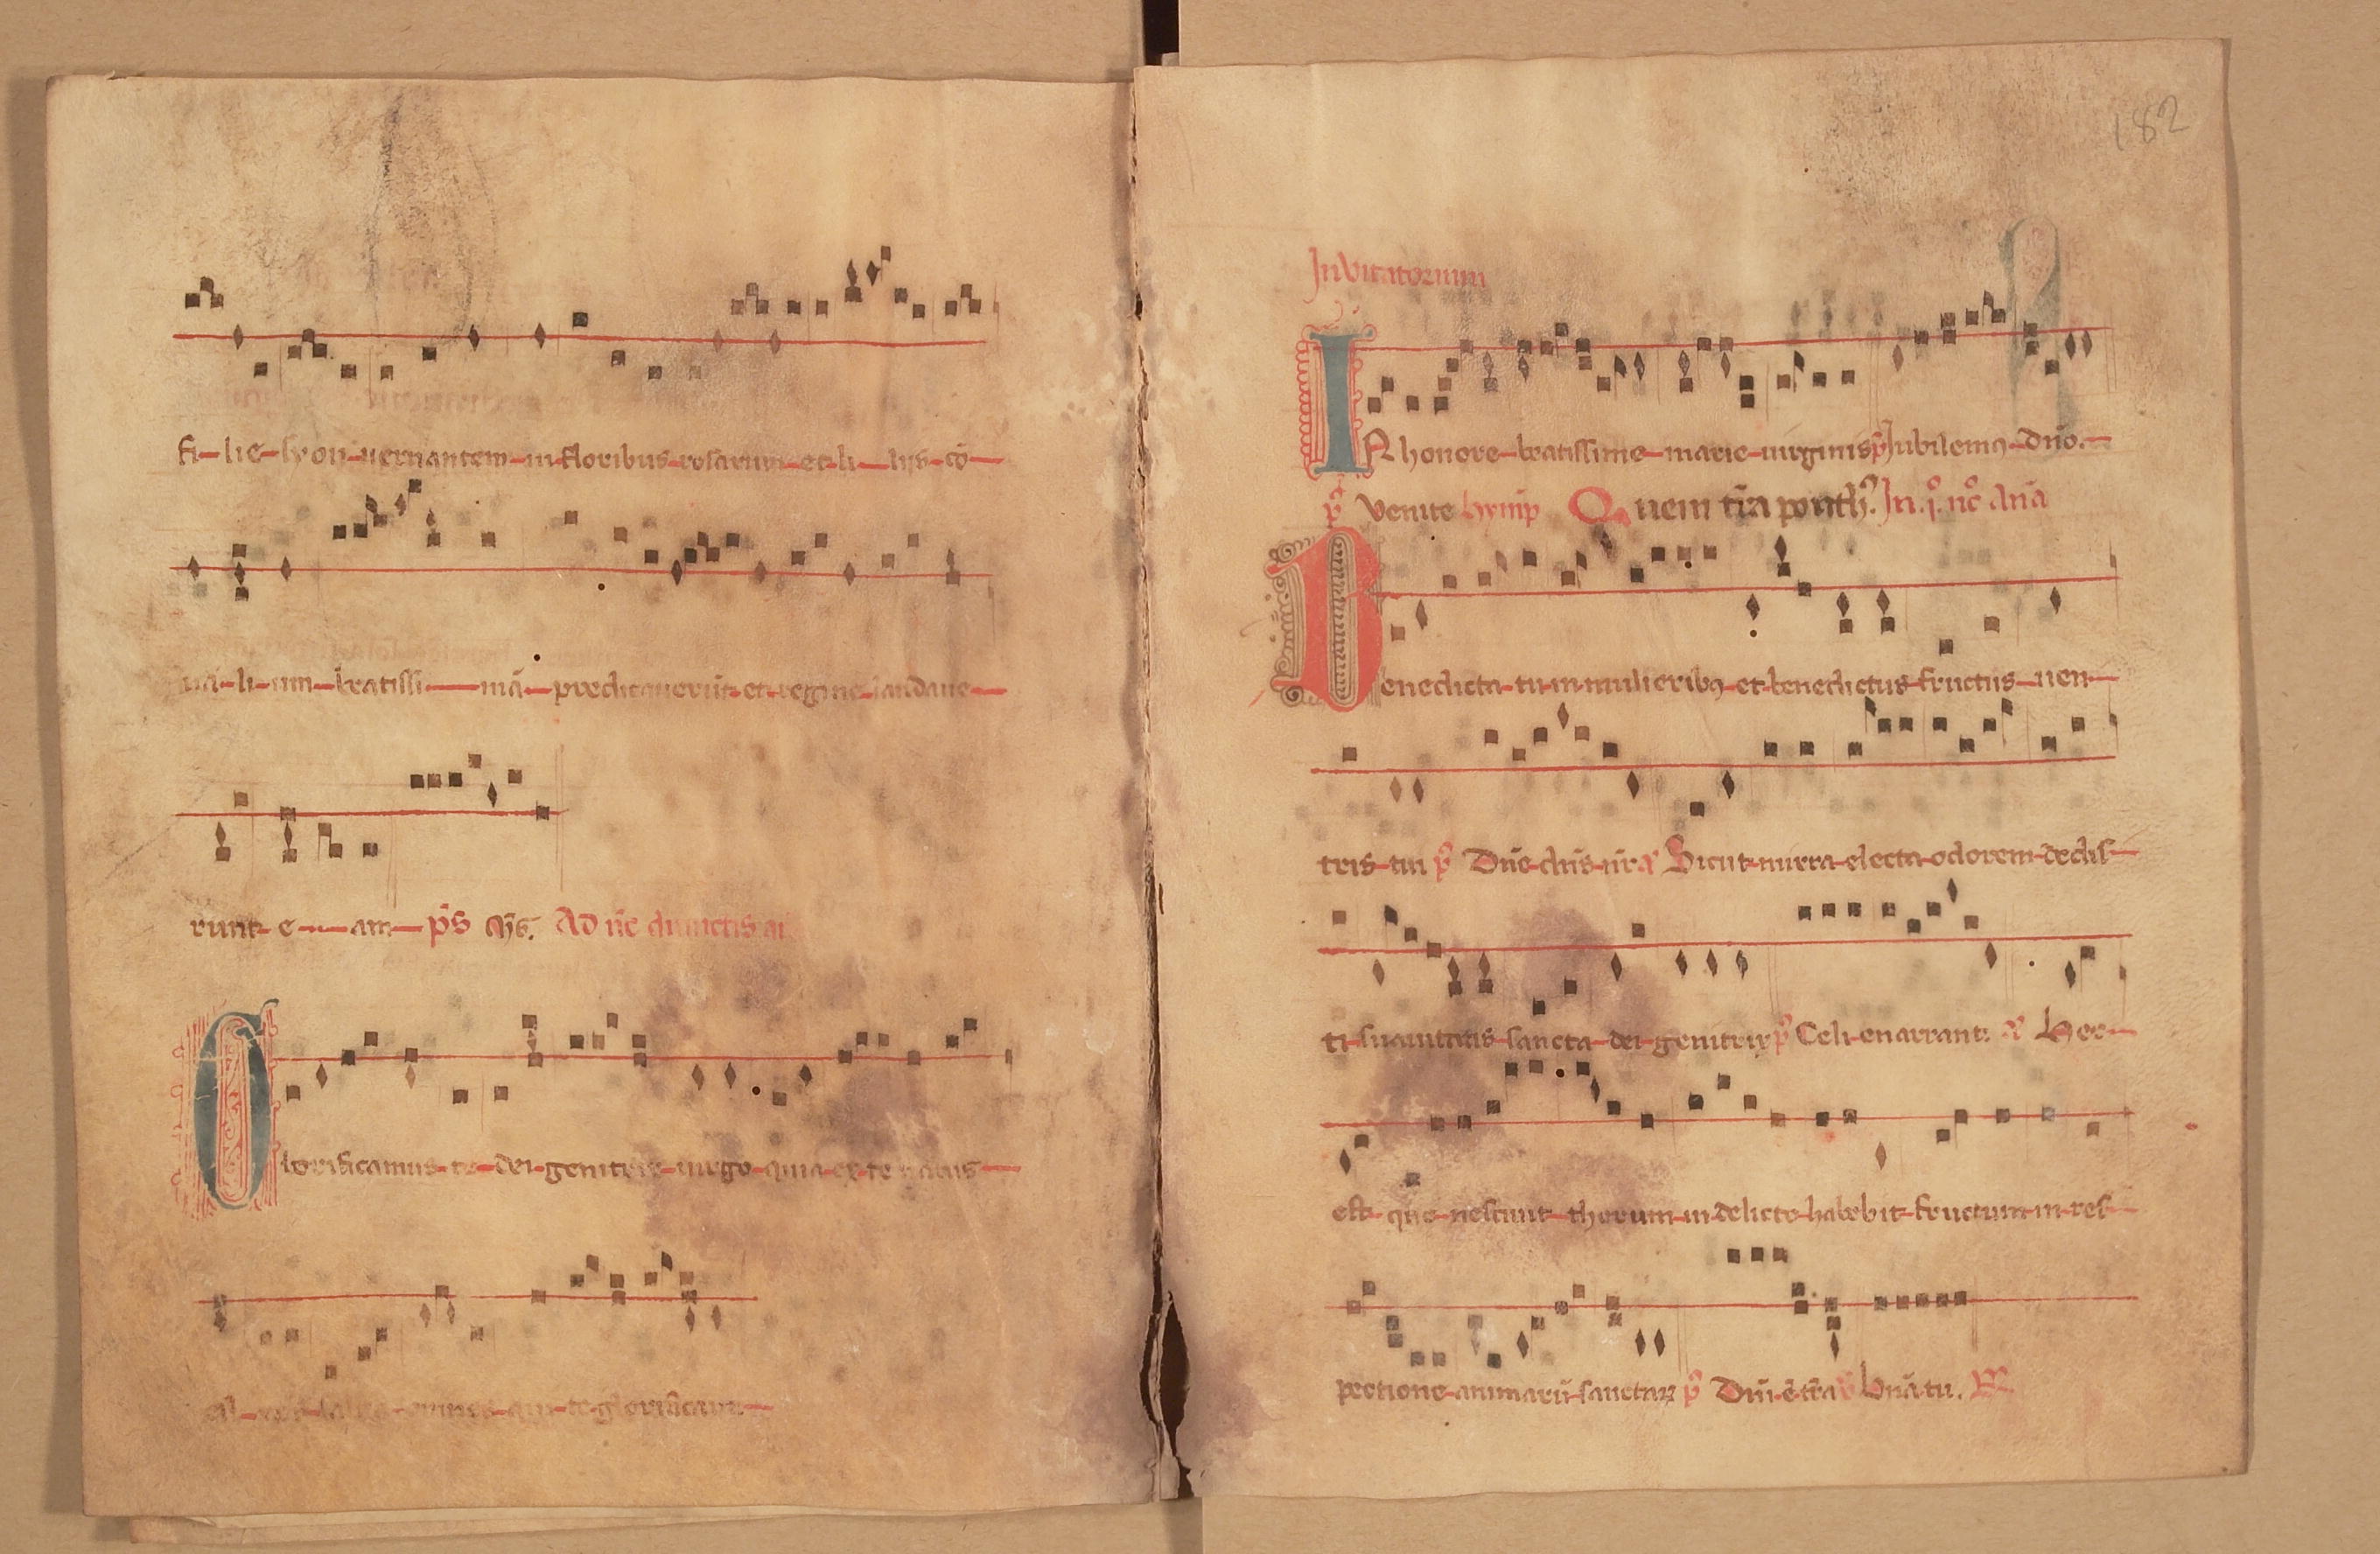 fi-lie-syon uernantem in floribus rosarum et li-lijs cō-
ua-li-um beatissi-mā predicauerūt et regine laudaue-
runt e-am p̄s
Ad nc̄ dimictis
lorificamus te dei genitrix uirgo quia ex te natus
omnes qui te glorificant
182
Inuitatorium
IN honore beatissime marie uirginis Jubilemꝰ dño.
Venite hymp̄ Quem t̄ra ponth᾽. In .j°. nc̄ Añā
Benedicta tu in mulieribꝰ et benedictus fructus uen-
tris tui p̄ Dñe dñs nr̄ a᾽ Sicut mirra electa odorem dedis-
ti suauitatis sancta dei genitrix p̄ Celi enarrant. a᾽ Hec
est que nesciuit thorum in delicto habebit fructum in res-
pectione animarū sanctarꝝ p̄ Dn̄i ē t̄ra Bn̄ā tu.